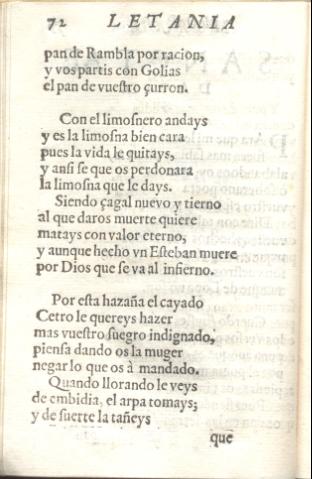 72 LETANIA
pan de Rambla por racion,
y vos partis con Golias
el pan de vueſtro çurron.
Con el limoſnero andays
y es la limoſna bien cara
pues la vida le quitays,
y anſi ſe que os perdonara
la limoſna que le days.
Siendo çagal nuevo y tierno
al que daros muerte quiere
matays con valor eterno,
y aunque hecho vn Eſteban muere
por Dios que ſe va al infierno.
Por eſta hazaña el cayado
Cetro le quereys hazer
mas vueſtro ſuegro indignado,
pienſa dando os la muger
negar lo que os à mandado.
Quando llorando le veys
de embidia, el arpa tomays;
y de ſuerte la tañeys
que